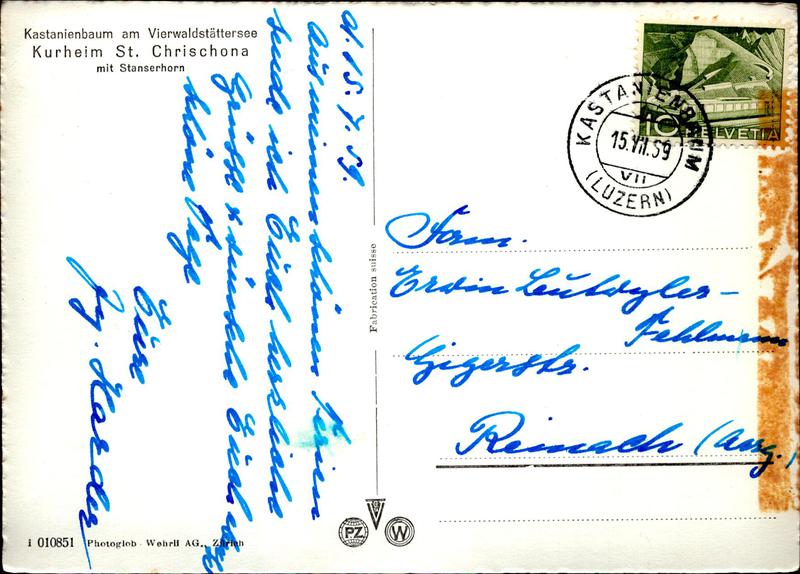 Kastanienbaum am Vierwaldstättersee
Kurheim St. Chrischona
mit Stanserhorn
d. 15. 7. 59.
Aus meinen schönen Ferien
sende ich Euch herzliche
Grüsse & wünsche Euch
schöne Tage
Eure
Fabrication suisse
KASTANIENBAUM
15.VII.59
VII
(LUZERN)
10 HELVETIA
Fam.
Erwin Lutwyler-
Fehlmann
Gigerstr.
Reinach (Aarg.)
PZ
W
i 010851 Photoglob - Wehrli AG., Zürich